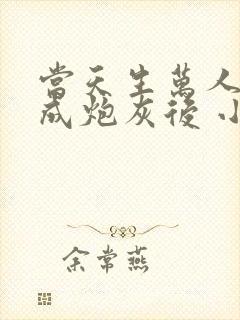 當天生萬人
成炮灰後 小
余常燕